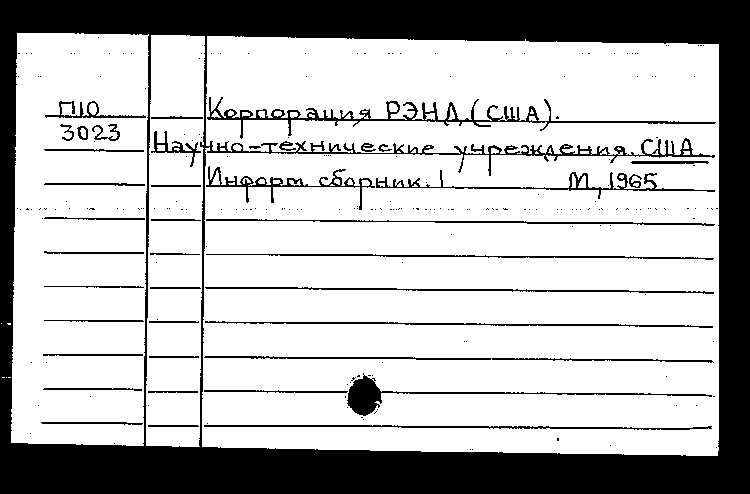 П10
3023
Корпорация РЭНД (США).
Научно-технические учреждения. США.
Информ. сборник. 1 М., 1965